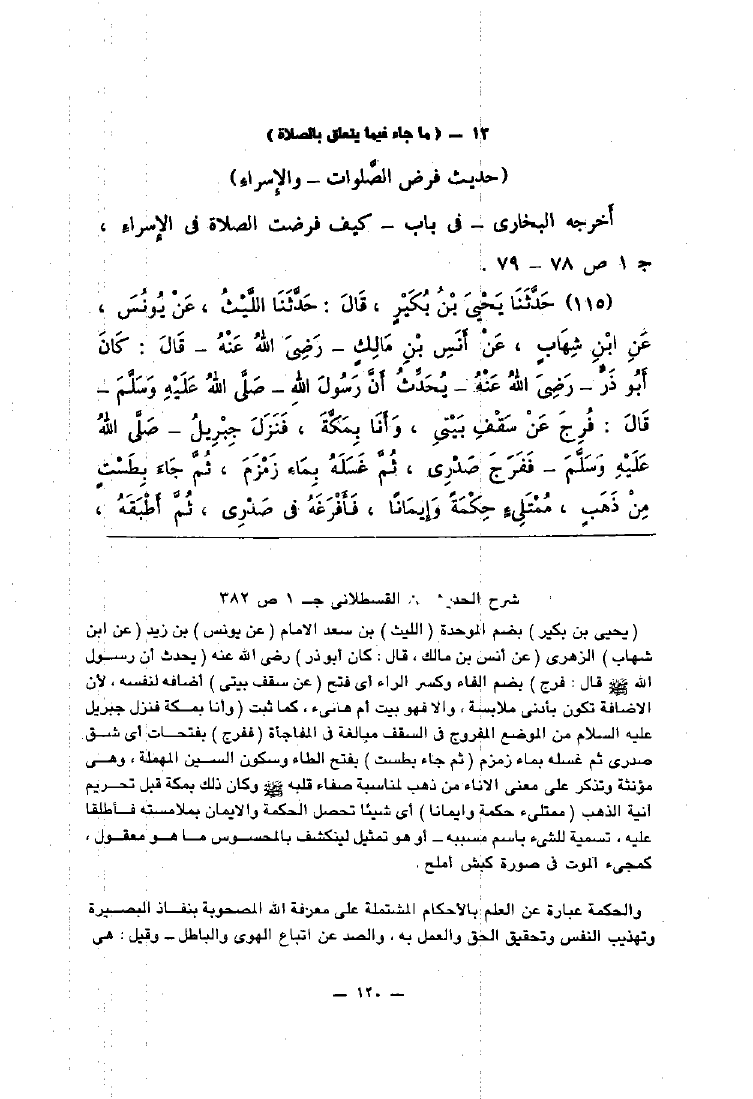 ١٣ – ( ما جاء فيما يتعلق بالصلاة )
(حديث فرض الصَّلوات – والإسراء)
أخرجه البخارى – فى باب – كيف فرضت الصلاة فى الإسراء ،
جـ ١ ص ٧٨ – ٧٩ .
(١١٥) حَدَّثَنَا يَحْيَىَ بْنُ بُكَيْرٍ ، قَالَ : حَدَّثَنَا اللَّيْثُ ، عَنْ يُونُسَ ،
عَنِ ابْنِ شِهَابٍ ، عَنْ أَنَسِ بْنِ مَالِكٍ – رَضِىَ اللهُ عَنْهُ – قَالَ : كَانَ
أَبُو ذَرٍّ – رَضِىَ اللهُ عَنْهُ – يُحَدِّثُ أَنَّ رَسُولَ اللهِ – صَلَّى اللهُ عَلَيْهِ وَسَلَّمَ –
قَالَ : فُرِجَ عَنْ سَقْفِ بَيْتِى ، وَأَنَا بِمَكَّةَ ، فَنَزَلَ جِبْرِيلُ – صَلَّى اللهُ
عَلَيْهِ وَسَلَّمَ – فَفَرَجَ صَدْرِى ، ثُمَّ غَسَلَهُ بِمَاءِ زَمْزَمَ ، ثُمَّ جَاءَ بِطَسْتٍ
مِنْ ذَهَبٍ ، مُمْتَلِىءٍ حِكْمَةً وَإِيمَانًا ، فَأَفْرَغَهُ فِى صَدْرِى ، ثُمَّ أَطْبَقَهُ ،
شرح الحديث القسطلانى جـ ١ ص ٣٨٢
( يحيى بن بكير ) بضم الموحدة ( الليث ) بن سعد الامام ( عن يونس ) بن زيد ( عن ابن
شهاب ) الزهرى ( عن أنس بن مالك ، قال : كان أبو ذر ) رضى الله عنه ( يحدث أن رسول
الله ﷺ قال : فرج ) بضم الفاء وكسر الراء أى فتح ( عن سقف بيتى ) أضافه لنفسه ، لأن
الاضافة تكون بأدنى ملابسة ، والا فهو بيت أم هانىء ، كما ثبت ( وأنا بمكة فنزل جبريل
عليه السلام من الموضع المفروج فى السقف مبالغة فى المفاجأة ( ففرج ) بفتحات أى شق
صدرى ثم غسله بماء زمزم ( ثم جاء بطست ) بفتح الطاء وسكون السين المهملة ، وهى
مؤنثة وتذكر على معنى الاناء من ذهب لمناسبة صفاء قلبه ﷺ وكان ذلك بمكة قبل تحريم
آنية الذهب ( ممتلىء حكمة وايمانا ) أى شيئا تحصل الحكمة والايمان بملامسته فأطلقا
عليه ، تسمية للشىء باسم مسببه – أو هو تمثيل لينكشف بالمحسوس ما هو معقول ،
كمجىء الموت فى صورة كبش أملح .
والحكمة عبارة عن العلم بالأحكام المشتملة على معرفة الله المصحوبة بنفاذ البصيرة
وتهذيب النفس وتحقيق الحق والعمل به ، والصد عن اتباع الهوى والباطل – وقيل : هى
– ١٢٠ –